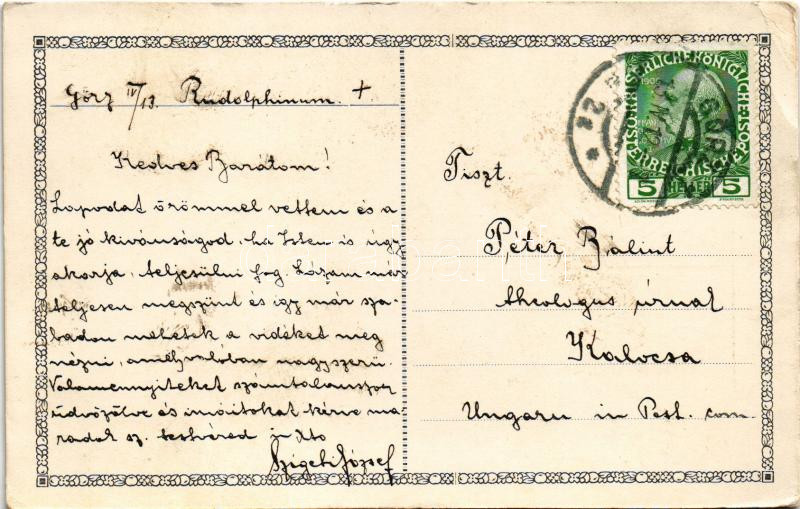 Görz IV/13. Rudolphinum. +
Kedves Barátom!
Lapodat örömmel vettem és a
te jó kívánságod, ha Isten is úgy
akarja, teljesülni fog. Lázam már
teljesen megszünt és így már sza-
badon mehetek a vidéket meg
nézni, amely valóban nagyszerű.
Valamennyiteket számtalanszor
üdvözölve és imáitokat kérve ma-
radok sz. testvéred in Xto
Szigeti József
Tiszt.
Péter Bálint
theologus úrnak
Kalocsa
Ungarn in Pest. com.
KAISERLICHE KÖNIGLICHE
ÖSTERREICHISCHE
5 HELLER 5